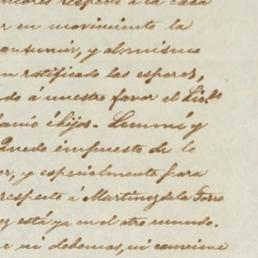 respeto á la casa
en movimiento la
y al mismo
ratificado las esperas,
do á nuestro favor el Lic.do
é hijos. Lemmé y
Quedo impuesto de lo
y especialmente para
respecto á Martinez de la Torre
ez está ya en el otro mundo.
e ni debemos, ni conviene